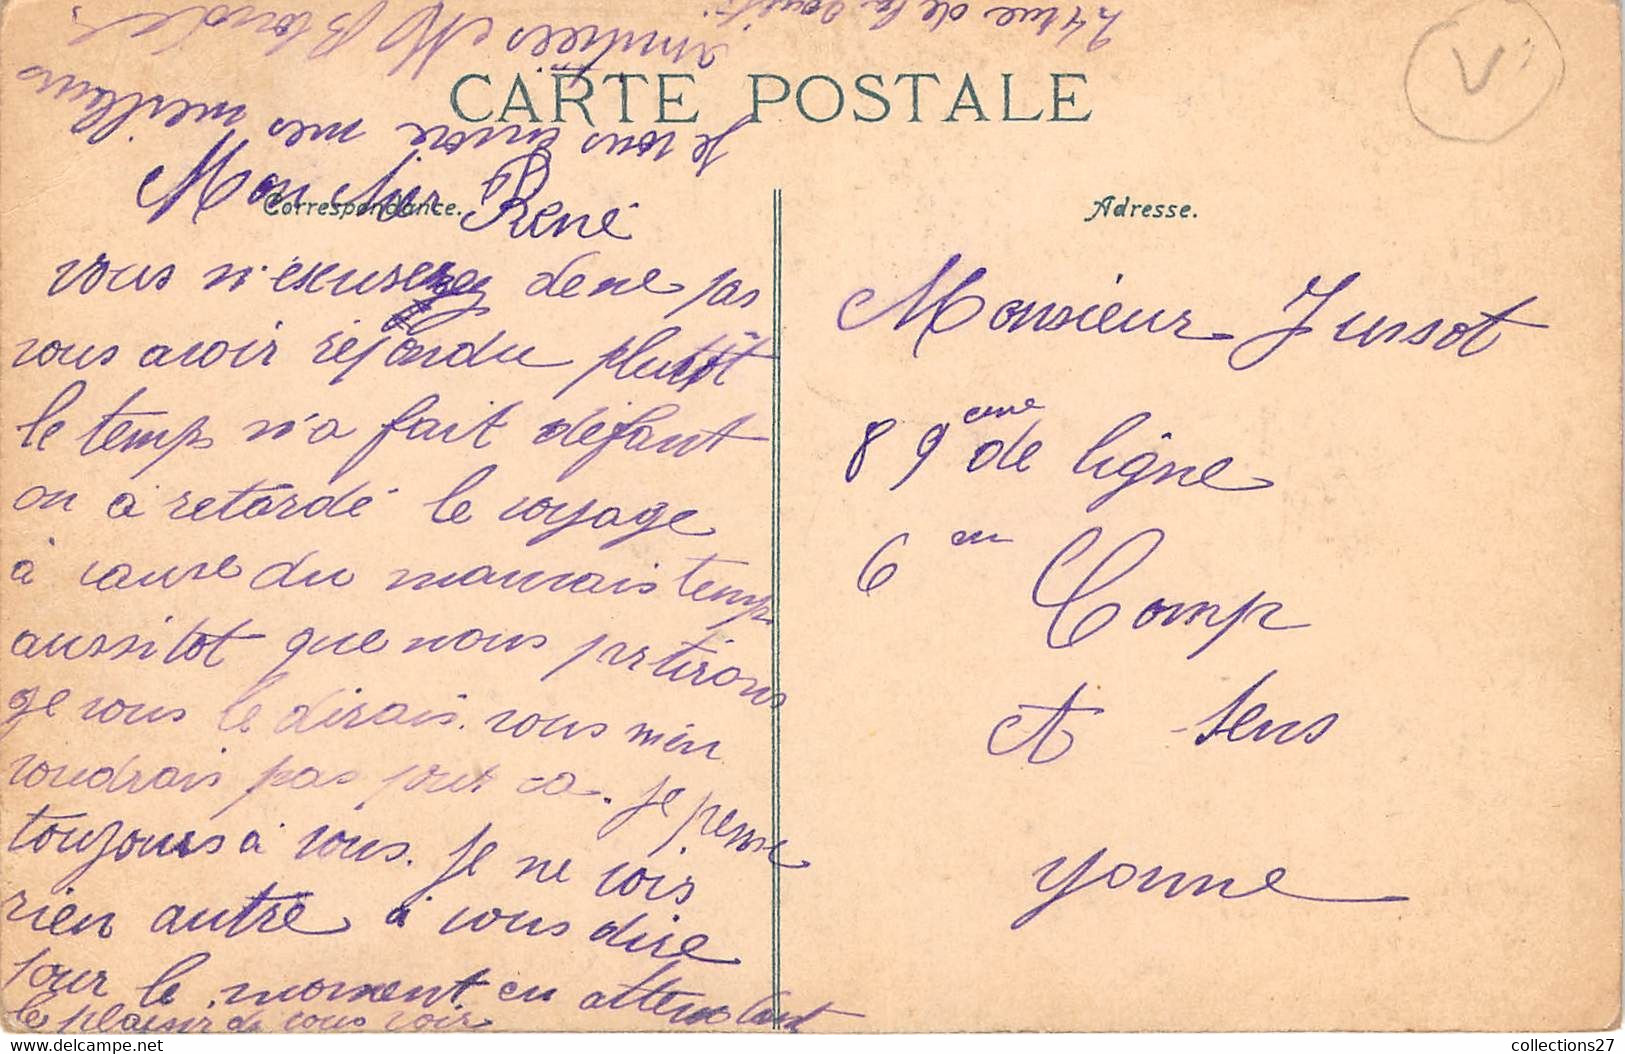 CARTE POSTALE
Correspondance.
Adresse.
Mon cher René
vous m'excuserez de ne pas
vous avoir répondu plutôt
le temps m'a fait défaut
on à retardé le voyage
à cause du mauvais temps
aussitot que nous partirons
je vous le dirais. vous m'en
voudrais pas pour ca. je pense
toujours à vous. je ne vois
rien autre à vous dire
pour le moment en attendant
le plaisir de vous voir
je vous envoie mes meilleurs
amitiés M Blondel
24 rue de la
Monsieur Jussot
89eme de ligne
6em Comp
A Sens
Yonne
V
collections27